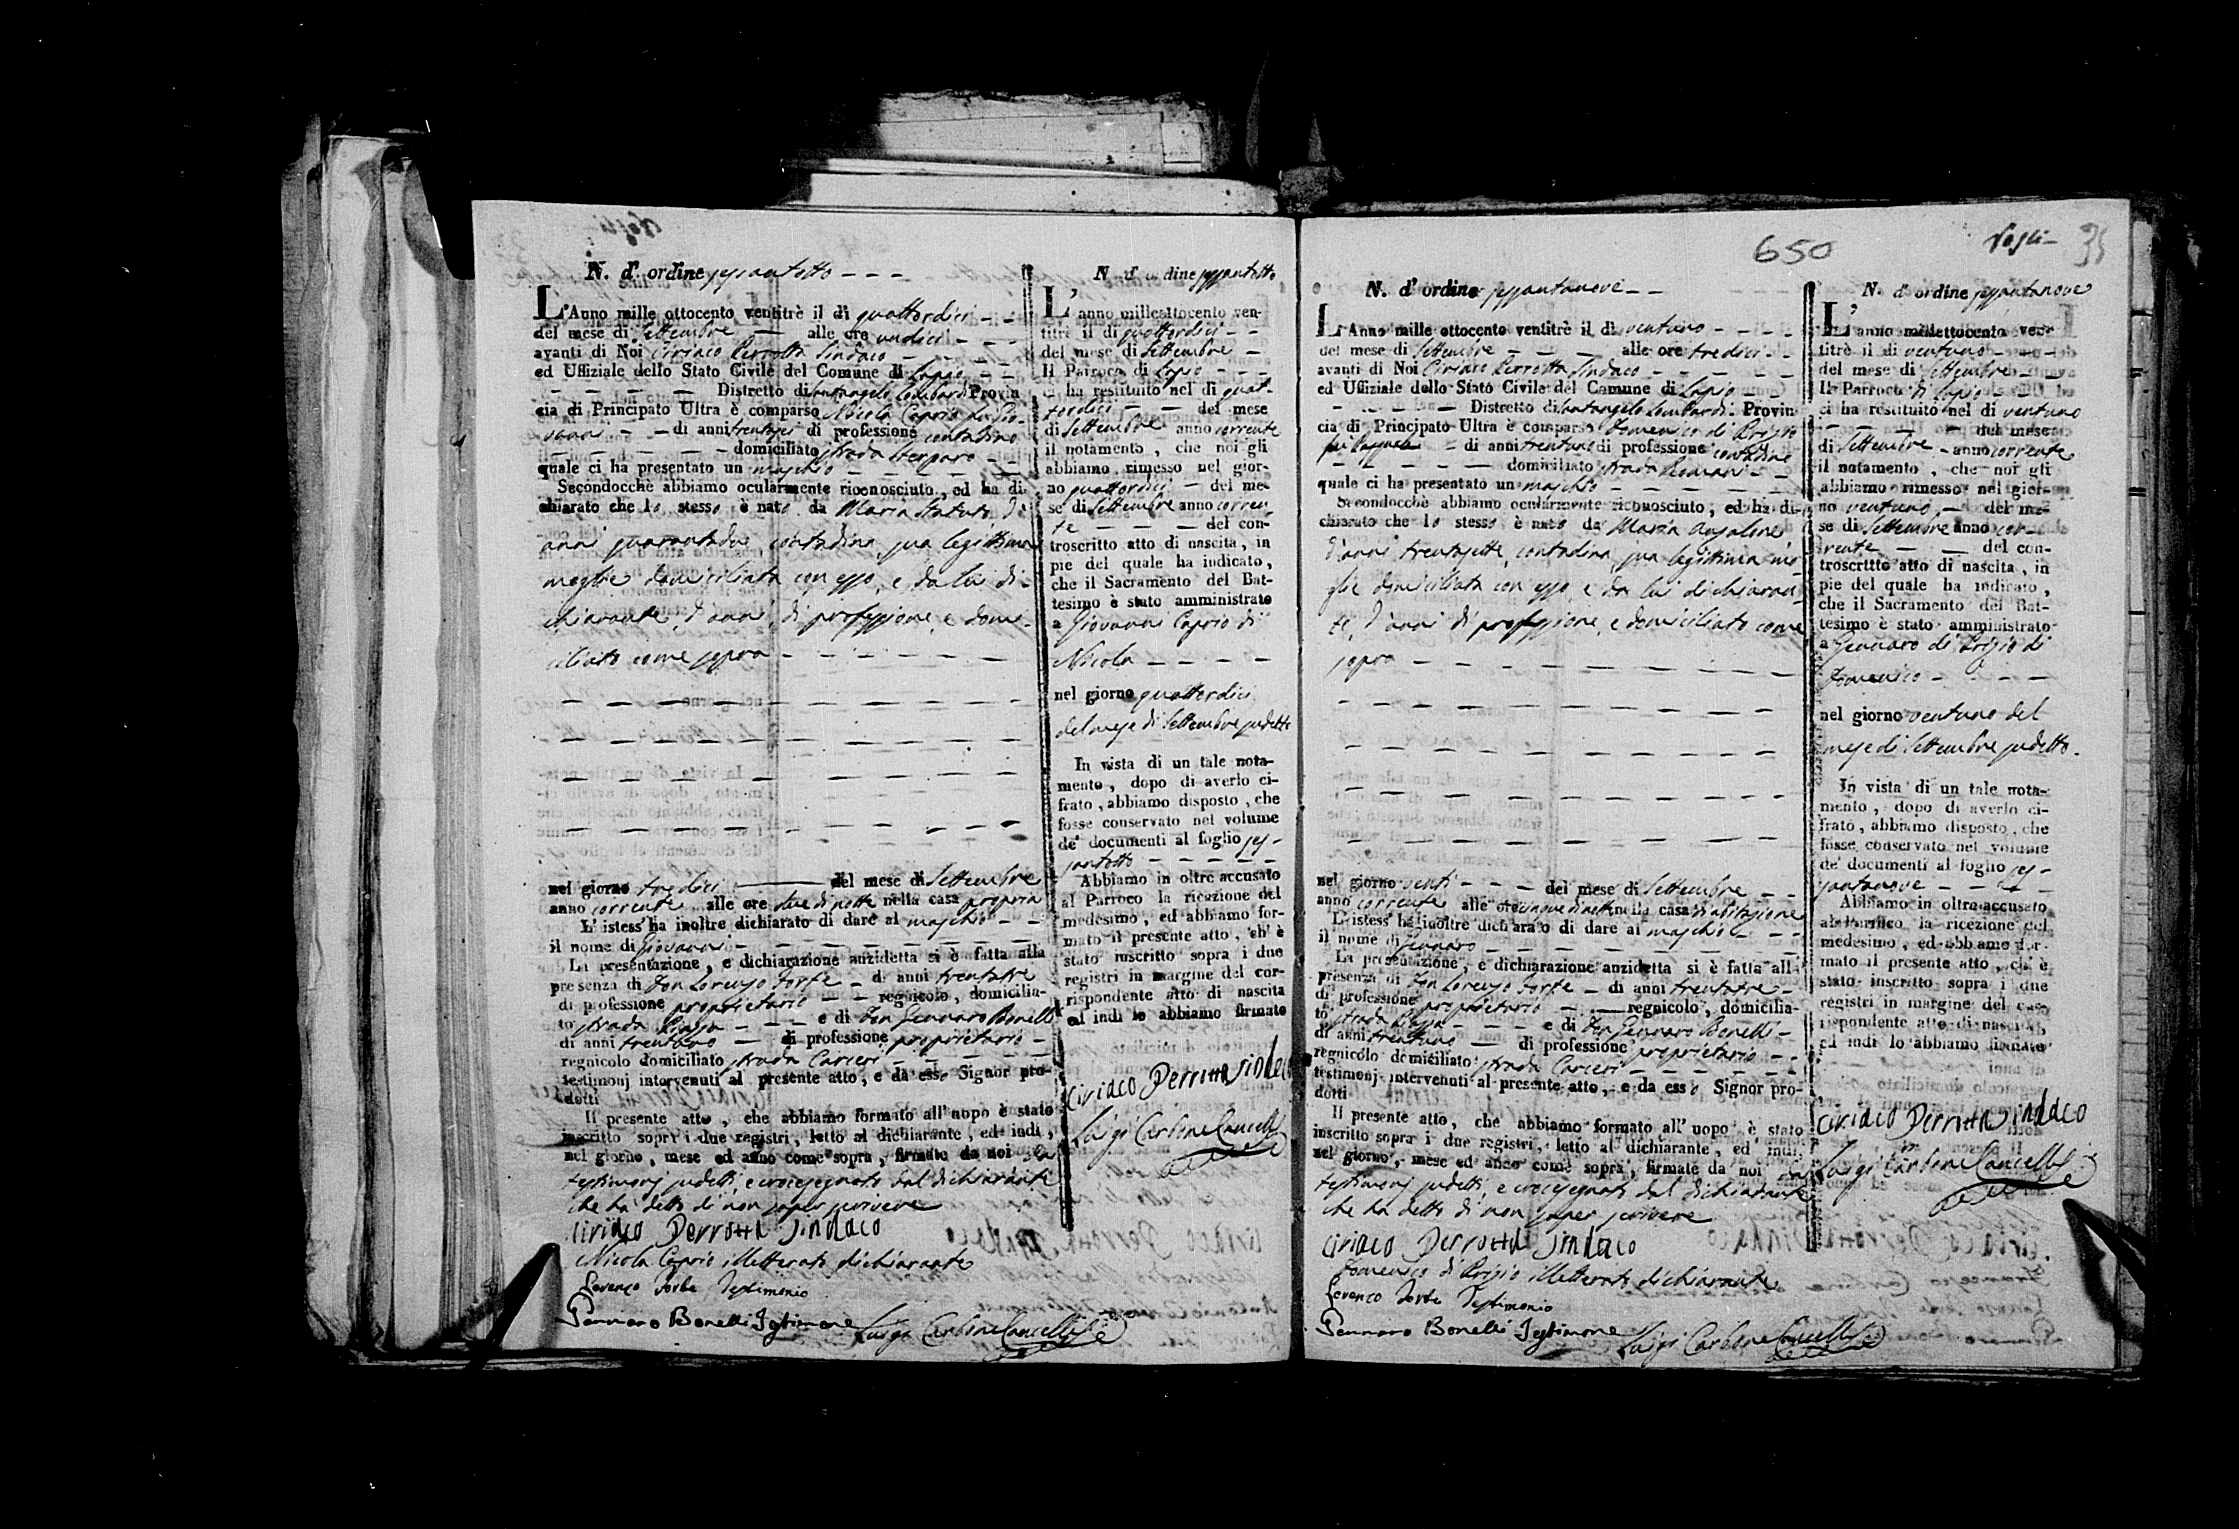 N. d'ordine sessantotto - - -
L'Anno mille ottocento ventitrè il dì quattordici - -
del mese di Settembre - alle ore undici - - -
avanti di Noi Ciriaco Perrotta Sindaco - - - -
ed Uffiziale dello Stato Civile del Comune di Lapio - -
- - - - - Distretto di Santangelo Lombardi Provin
cia di Principato Ultra è comparso Nicola Caprio di Gio-
vanni - - di anni trentasei di professione contadino
- - - - - domiciliato strada Sterparo - -
quale ci ha presentato un maschio - - - -
Secondocchè abbiamo ocularmente riconosciuto, ed ha di-
chiarato che lo stesso è nato da Maria Statuto d'
anni quarantadue contadina sua legittima
moglie domiciliata con esso, e da lui di-
chiarante, d'anni, di professione, e domi-
ciliato come sopra - - - - - -
nel giorno tredici - del mese di Settembre
anno corrente alle ore due di notte nella casa propria
L'istess' ha inoltre dichiarato di dare al maschio - -
il nome di Giovanni - - - - - - -
La presentazione, e dichiarazione anzidetta si è fatta alla
presenza di Don Lorenzo Forte - di anni trentatre
di professione proprietario - - regnicolo, domicilia-
to strada Piazza - - - e di Don Gennaro Bonelli
di anni trentuno - di professione proprietario -
regnicolo domiciliato strada Carceri - - - - -
testimonj intervenuti al presente atto, e da esso Signor pro-
dotti
Il presente atto, che abbiamo formato all'uopo è stato
inscritto sopra i due registri, letto al dichiarante, ed indi,
nel giorno, mese ed anno come sopra, firmato da noi dai
testimonj sudetti, e crocesegnato dal dichiarante
che ha detto di non saper scrivere
Ciriaco Perrotta Sindaco
Nicola Caprio illetterato dichiarante
Lorenzo Forte Testimonio
Gennaro Bonelli Testimone Luigi Carbone Cancelliere
N. d'ordine sessantotto
L'anno millesttocento ven-
titrè il dì quattordici - -
del mese di Settembre -
Il Parroco di Lapio - - -
ci ha restituito nel dì quat-
tordici - - del mese
di Settembre anno corrente
il notamento, che noi gli
abbiamo rimesso nel gior-
no quattordici - del me-
se di Settembre anno corren
te - - - del con-
troscritto atto di nascita, in
pie del quale ha indicato,
che il Sacramento del Bat-
tesimo è stato amministrato
a Giovanni Caprio di
Nicola - - - -
nel giorno quattordici
del mese di Settembre sudetto
In vista di un tale nota-
mento, dopo di averlo ci-
frato, abbiamo disposto, che
fosse conservato nel volume
de' documenti al foglio ses-
santotto - - - - -
Abbiamo in oltre accusato
al Parroco la ricezione del
medesimo, ed abbiamo for-
mato il presente atto, ch' è
stato inscritto sopra i due
registri in margine del cor-
rispondente atto di nascita
ed indi lo abbiamo firmato
Ciriaco Perrotta Sindaco
Luigi Carbone Cancelliere
650
35
N. d'ordine sessantanove - -
L'Anno mille ottocento ventitrè il dì ventuno - - - -
del mese di Settembre - - - alle ore tredici - -
avanti di Noi Ciriaco Perrotta Sindaco - - - - -
ed Uffiziale dello Stato Civile del Comune di Lapio - -
- - - - Distretto di Santangelo Lombardi Provin
cia di Principato Ultra è comparso Domenico di Prizio
- di anni trentuno di professione contadino
- - - - - domiciliato strada Romani - -
quale ci ha presentato un maschio - - - - -
Secondocchè abbiamo ocularmente riconosciuto, ed ha di-
chiarato che lo stesso è nato da Maria Anzalone
d'anni trentasette, contadina, sua legittima mo-
glie domiciliata con esso, e da lui dichiaran-
te, d'anni di professione, e domiciliato come
sopra - - - - - - - -
nel giorno venti - - - del mese di Settembre - -
anno corrente alle ore nove di notte nella casa di abitazione
L'istess' ha inoltre dichiarato di dare al maschio - - -
il nome di Gennaro - - - - - -
La presentazione, e dichiarazione anzidetta si è fatta alla
presenza di Don Lorenzo Forte - di anni trentatre -
di professione proprietario - - regnicolo, domicilia-
to strada Piazza - - - e di Don Gennaro Bonelli -
di anni trentuno - di professione proprietario - -
regnicolo domiciliato strada Carceri - - - - -
testimonj intervenuti al presente atto, e da esso Signor pro-
dotti
Il presente atto, che abbiamo formato all' uopo è stato
inscritto sopra i due registri, letto al dichiarante, ed indi,
nel giorno, mese ed anno come sopra, firmato da noi dai
testimonj sudetti, e crocesegnato dal dichiarante
che ha detto di non saper scrivere
Ciriaco Perrotta Sindaco
Domenico di Prizio illetterato dichiarante
Lorenzo Forte Testimonio
Gennaro Bonelli Testimone Luigi Carbone Cancelliere
N. d'ordine sessantanove
L'anno millettocento ven-
titrè il dì ventuno - - -
del mese di Settembre - -
Il Parroco di Lapio - - -
ci ha restituito nel dì ventuno
- - - - del mese
di Settembre - anno corrente
il notamento, che noi gli
abbiamo rimesso nel gior-
no ventuno - del me-
se di Settembre anno cor-
rente - - del con-
troscritto atto di nascita, in
pie del quale ha indicato,
che il Sacramento del Bat-
tesimo è stato amministrato
a Gennaro di Prizio di
Domenico - - - -
nel giorno ventuno del
mese di Settembre sudetto.
In vista di un tale nota-
mento, dopo di averlo ci-
frato, abbiamo disposto, che
fosse conservato nel volume
de' documenti al foglio ses-
santanove - - - -
Abbiamo in oltre accusato
al Parroco la ricezione del
medesimo, ed abbiamo for-
mato il presente atto, ch' è
stato inscritto sopra i due
registri in margine del cor-
rispondente atto di nascita,
ed indi lo abbiamo firmato
Ciriaco Perrotta Sindaco
Luigi Carbone Cancelliere